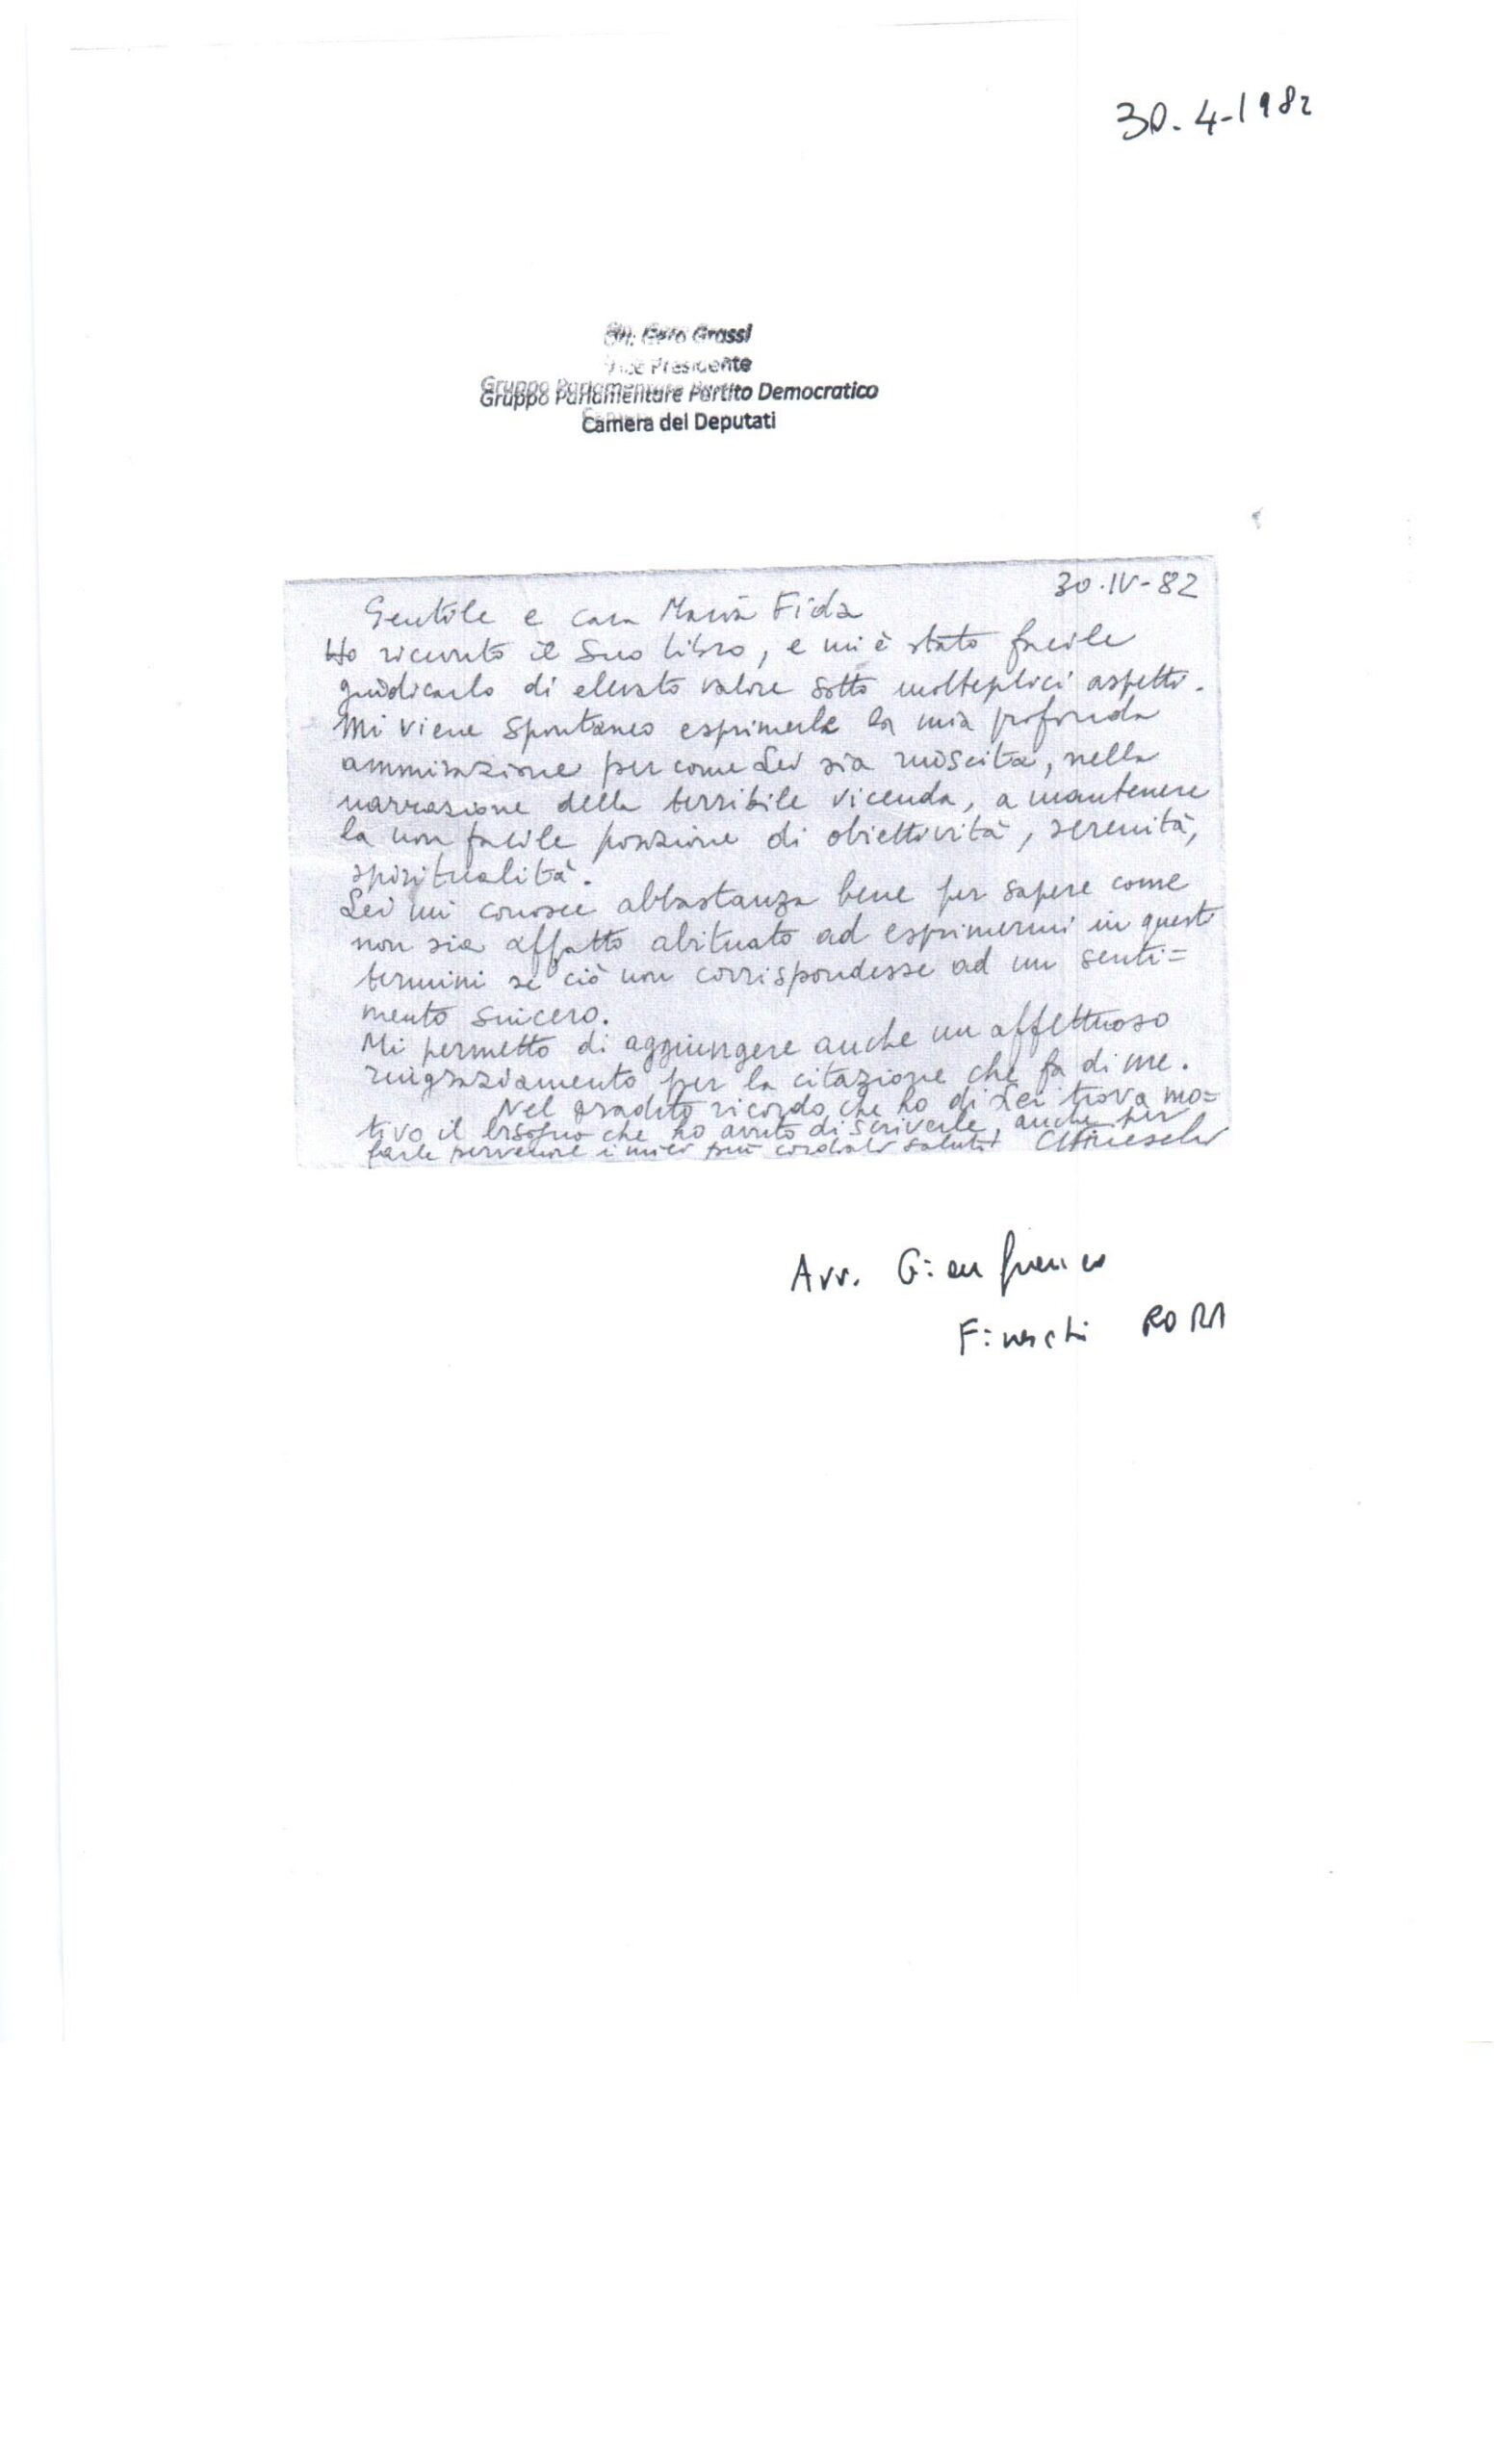 30.4-1982
On. Gero Grassi
Vice Presidente
Gruppo Parlamentare Partito Democratico
Camera dei Deputati
30.IV-82
Gentile e cara Maria Fida
Ho ricevuto il Suo libro, e mi è stato facile
giudicarlo di elevato valore sotto molteplici aspetti.
Mi viene spontaneo esprimerle la mia profonda
ammirazione per come Lei sia riuscita, nella
narrazione della terribile vicenda, a mantenere
la non facile posizione di obiettività, serenità,
spiritualità.
Lei mi conosce abbastanza bene per sapere come
non sia affatto abituato ad esprimermi in questi
termini se ciò non corrispondesse ad un senti=
mento sincero.
Mi permetto di aggiungere anche un affettuoso
ringraziamento per la citazione che fa di me.
Nel gradito ricordo che ho di Lei trova mo=
tivo il bisogno che ho avuto di scriverle, anche per
farle pervenire i miei più cordiali saluti Fineschi
Avv. Gianfranco
Fineschi ROMA